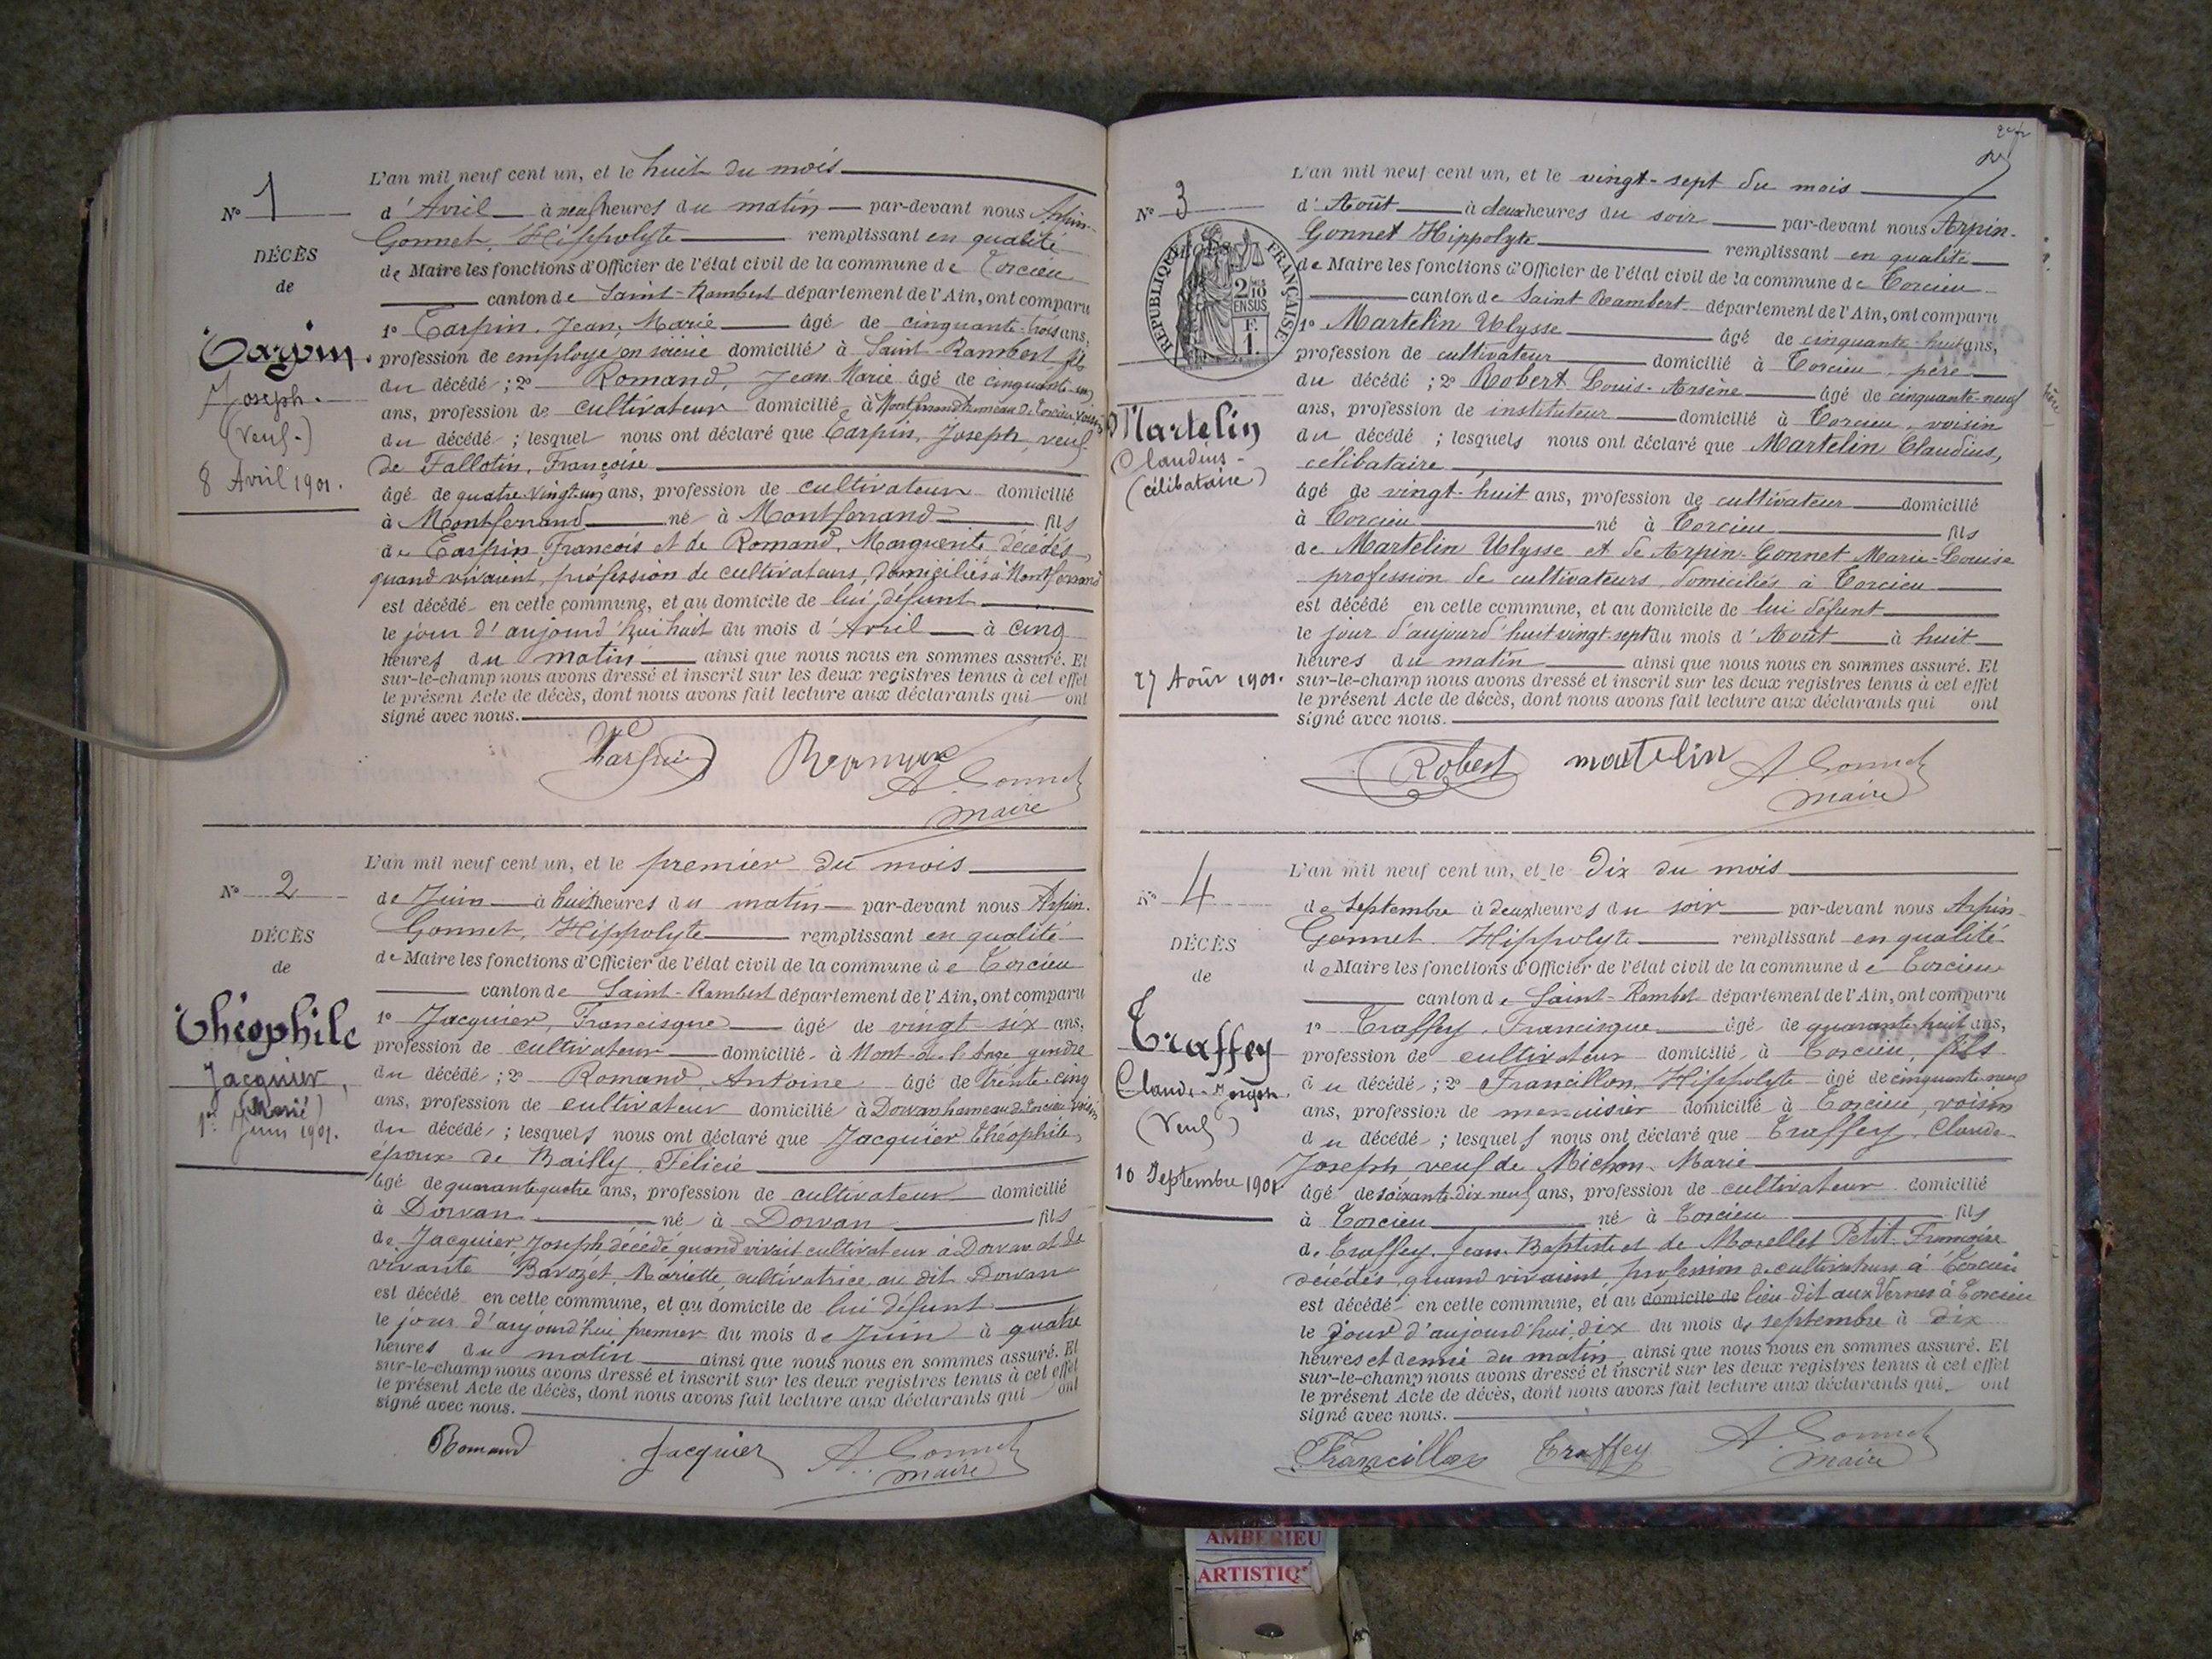 N° 1
DÉCÈS
de
Carpin.
Joseph.
(Veuf.)
8 Avril 1901.
L'an mil neuf cent un, et le huit du mois
d'Avril à neuf heures du matin par-devant nous Arpin-
Gonnet, Hippolyte remplissant en qualité
de Maire les fonctions d'Officier de l'état civil de la commune de Torcieu
canton de Saint-Rambert département de l'Ain, ont comparu
1° Carpin, Jean, Marie âgé de cinquante-trois ans,
profession de employé en soierie domicilié à Saint-Rambert, fils
du décédé ; 2° Romand, Jean Marie âgé de cinquante-un
ans, profession de cultivateur domicilié à Montferrand hameau de Torcieu, voisin
du décédé ; lesquels nous ont déclaré que Carpin, Joseph, veuf
de Fallotin, Françoise
âgé de quatre-vingt-un ans, profession de cultivateur domicilié
à Montferrand né à Montferrand fils
de Carpin, François et de Romand, Marguerite, décédés,
quand vivaient, profession de cultivateurs, domiciliés à Montferrand
est décédé en cette commune, et au domicile de lui défunt
le jour d'aujourd'hui huit du mois d'Avril à cinq
heures du matin ainsi que nous nous en sommes assuré. Et
sur-le-champ nous avons dressé et inscrit sur les deux registres tenus à cet effet
le présent Acte de décès, dont nous avons fait lecture aux déclarants qui ont
signé avec nous.
A. Gonnet
maire
N° 2
DÉCÈS
de
Théophile
Jacquier,
(Marié)
1er Juin 1901.
L'an mil neuf cent un, et le premier du mois
de Juin à huit heures du matin par-devant nous Arpin-
Gonnet, Hippolyte remplissant en qualité
de Maire les fonctions d'Officier de l'état civil de la commune de Torcieu
canton de Saint-Rambert département de l'Ain, ont comparu
1° Jacquier, Francisque âgé de vingt-six ans,
profession de cultivateur domicilié à Mont-de-l'Ange gendre
du décédé ; 2° Romand, Antoine âgé de trente-cinq
ans, profession de cultivateur domicilié à Dorvan hameau de Torcieu, voisin
du décédé ; lesquels nous ont déclaré que Jacquier Théophile,
époux de Bailly, Félicie
âgé de quarante quatre ans, profession de cultivateur domicilié
à Dorvan né à Dorvan fils
de Jacquier Joseph décédé quand vivait cultivateur à Dorvan et de
vivante Bavozet, Mariette, cultivatrice au dit Dorvan
est décédé en cette commune, et au domicile de lui défunt
le jour d'aujourd'hui premier du mois de Juin à quatre
heures du matin ainsi que nous nous en sommes assuré. Et
sur-le-champ nous avons dressé et inscrit sur les deux registres tenus à cet effet
le présent Acte de décès, dont nous avons fait lecture aux déclarants qui ont
signé avec nous.
Romand Jacquier A. Gonnet
maire
N° 3
RÉPUBLIQUE FRANÇAISE
2/10 EN SUS
F. 1.
Martelin
Claudius
(célibataire)
27 Août 1901.
L'an mil neuf cent un, et le vingt-sept du mois
d'Août à deux heures du soir par-devant nous Arpin-
Gonnet Hippolyte remplissant en qualité
de Maire les fonctions d'Officier de l'état civil de la commune de Torcieu
canton de Saint Rambert département de l'Ain, ont comparu
1° Martelin Ulysse âgé de cinquante-huit ans,
profession de cultivateur domicilié à Torcieu, père
du décédé ; 2° Robert Louis-Arsène âgé de cinquante-neuf
ans, profession de instituteur domicilié à Torcieu, voisin
du décédé ; lesquels nous ont déclaré que Martelin Claudius,
célibataire
âgé de vingt-huit ans, profession de cultivateur domicilié
à Torcieu né à Torcieu fils
de Martelin Ulysse et de Arpin-Gonnet Marie-Louise
profession de cultivateurs, domiciliés à Torcieu
est décédé en cette commune, et au domicile de lui défunt
le jour d'aujourd'huit vingt-sept du mois d'Août à huit
heures du matin ainsi que nous nous en sommes assuré. Et
sur-le-champ nous avons dressé et inscrit sur les deux registres tenus à cet effet
le présent Acte de décès, dont nous avons fait lecture aux déclarants qui ont
signé avec nous.
Robert martelin A. Gonnet
maire
N° 4
DÉCÈS
de
Traffey
Claude-Joseph.
(Veuf)
10 Septembre 1901.
L'an mil neuf cent un, et le Dix du mois
de Septembre à deux heures du soir par-devant nous Arpin-
Gonnet Hippolyte remplissant en qualité
de Maire les fonctions d'Officier de l'état civil de la commune de Torcieu
canton de Saint-Rambert département de l'Ain, ont comparu
1° Traffey, Francisque âgé de quarante-huit ans,
profession de cultivateur domicilié à Torcieu, fils
du décédé ; 2° Francillon, Hippolyte âgé de cinquante-neuf
ans, profession de menuisier domicilié à Torcieu, voisin
du décédé ; lesquels nous ont déclaré que Traffey, Claude-
Joseph veuf de Michon, Marie
âgé de soixante-dix neuf ans, profession de cultivateur domicilié
à Torcieu né à Torcieu fils
de Traffey, Jean-Baptiste et de Morellet Petit Françoise
décédés, quand vivaient, profession de cultivateurs à Torcieu
est décédé en cette commune, et au domicile de lieu dit aux Vernes à Torcieu
le jour d'aujourd'hui dix du mois de septembre à dix
heures et demie du matin ainsi que nous nous en sommes assuré. Et
sur-le-champ nous avons dressé et inscrit sur les deux registres tenus à cet effet
le présent Acte de décès, dont nous avons fait lecture aux déclarants qui ont
signé avec nous.
Francillon Traffey A. Gonnet
maire
AMBERIEU
ARTISTIQ'